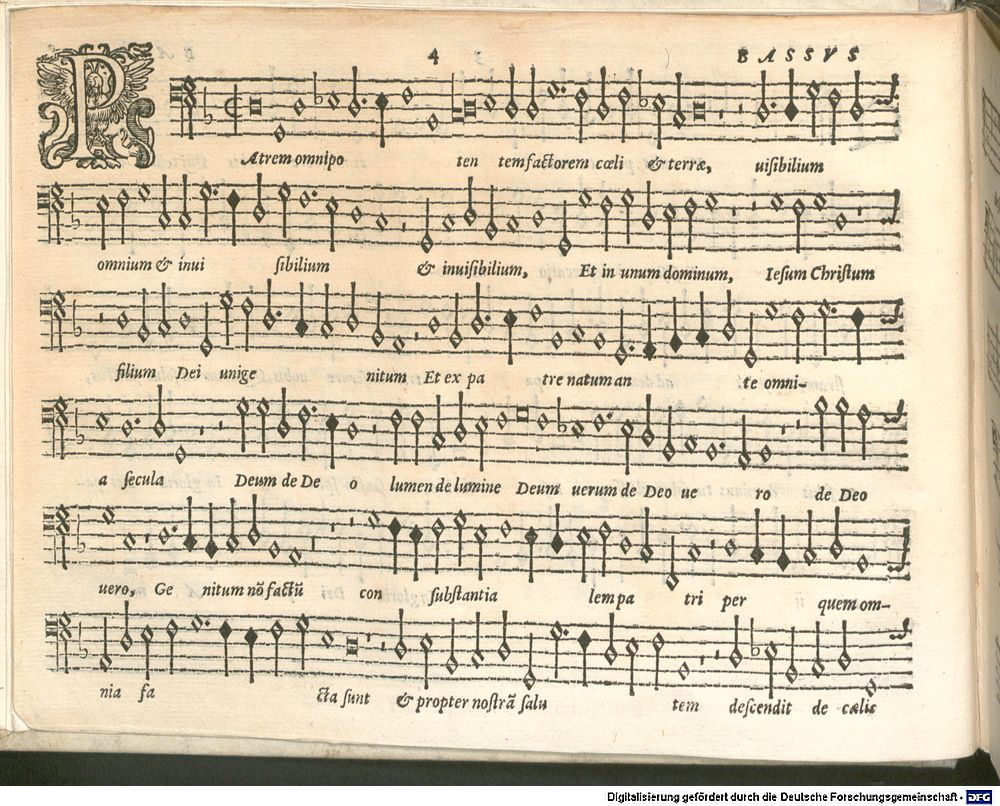 4 BASSVS
PAtrem omnipo ten tem factorem cœli & terræ, uisibilium
omnium & inui sibilium & inuisibilium, Et in unum dominum, Iesum Christum
filium Dei unige nitum Et ex pa tre natum an te omni-
a secula Deum de De o lumen de lumine Deum uerum de Deo ue ro de Deo
uero, Ge nitum nõ factũ con substantia lem pa tri per quem om-
nia fa cta sunt & propter nostrã salu tem descendit de cælis
Digitalisierung gefördert durch die Deutsche Forschungsgemeinschaft - DFG